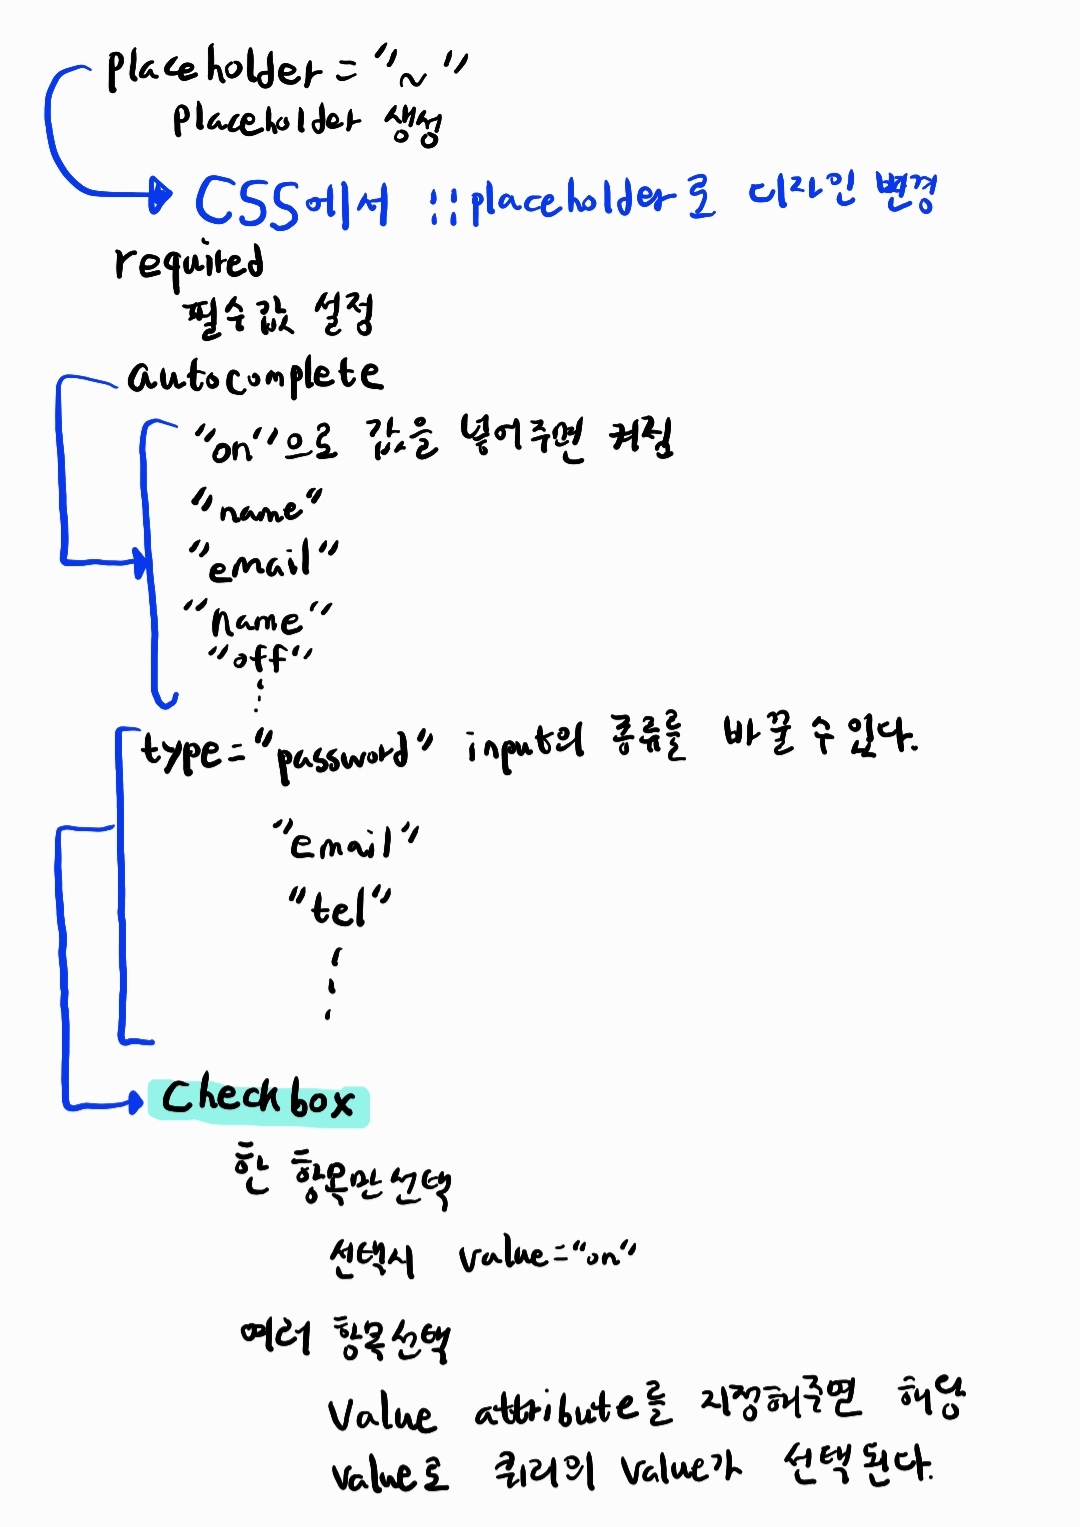 placeholder = "~"
placeholder 생성
CSS에서 ::placeholder로 디자인 변경
required
필수값 설정
autocomplete
"on"으로 값을 넣어주면 켜짐
"name"
"email"
"name"
"off"
type="password" input의 종류를 바꿀 수 있다.
"email"
"tel"
Checkbox
한 항목만 선택
선택시 value="on"
여러 항목 선택
Value attribute를 지정해주면 해당
value로 쿼리의 value가 선택된다.